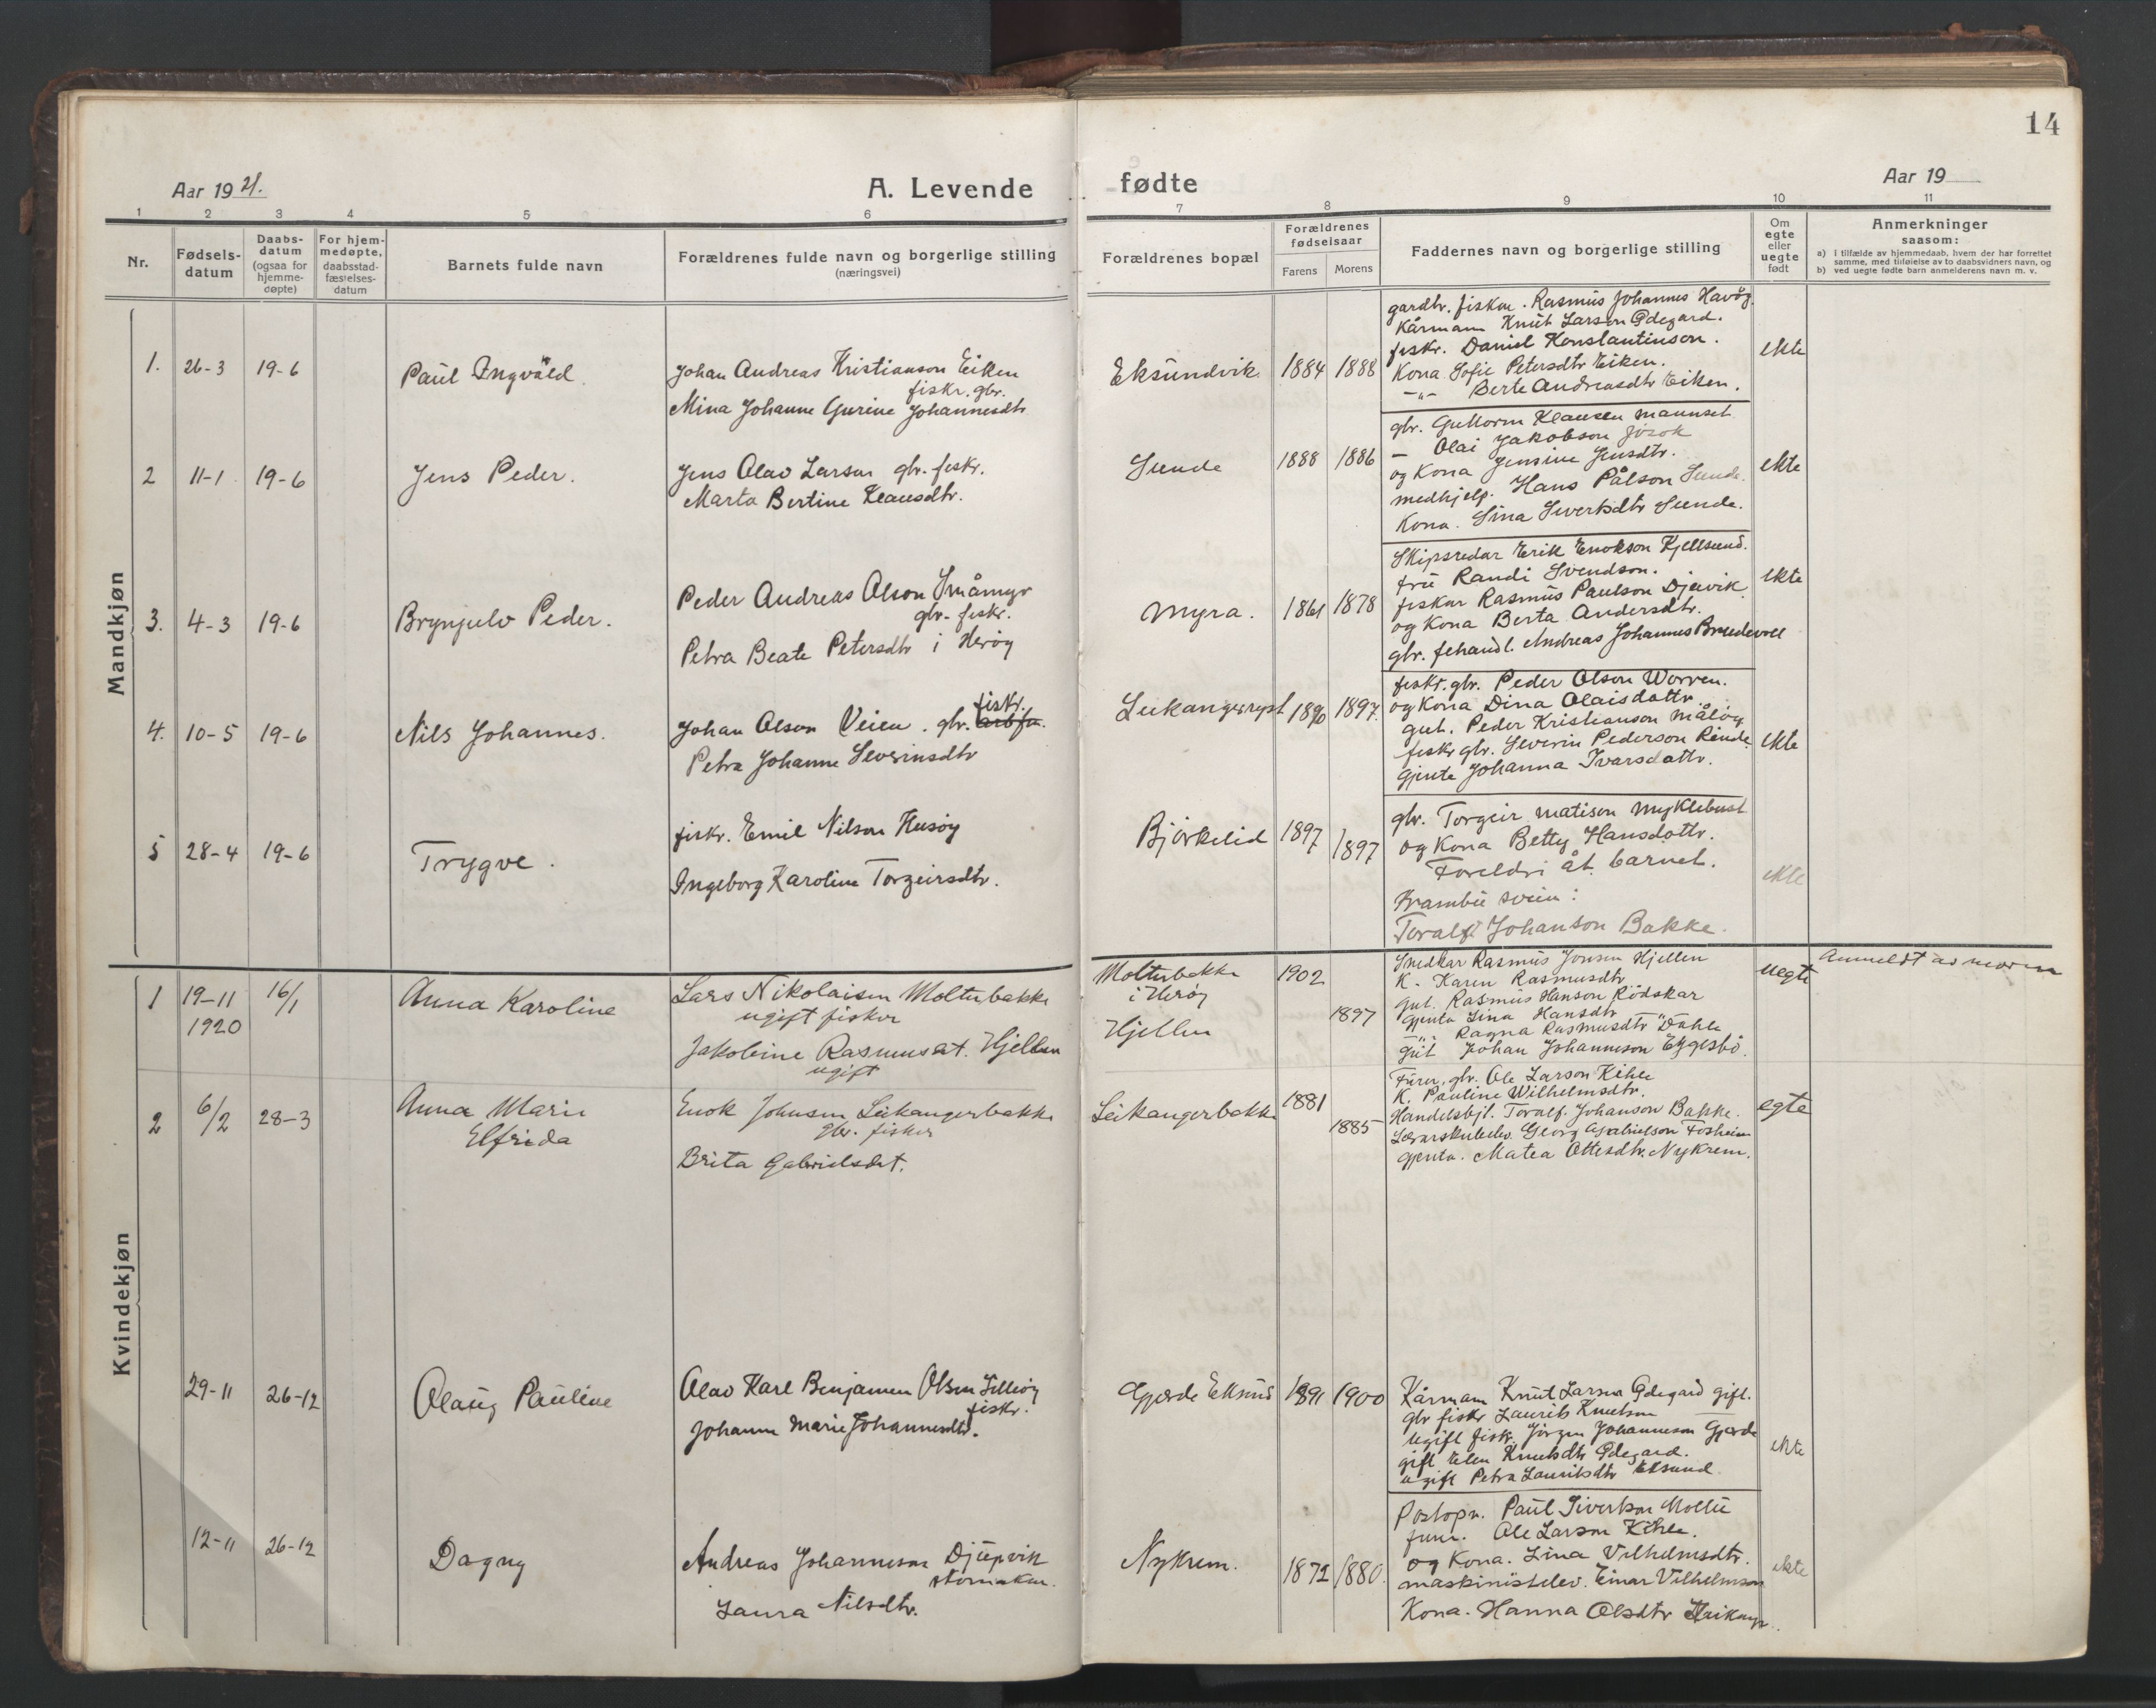 14
Aar 1921.
A. Levende
fødte
Aar 19
1 2 3 4 5 6 7 8 9 10 11
Nr.
Fødsels-
datum
Daabs-
datum
(ogsaa for
hjemme-
døpte)
For hjem-
medøpte,
daabsstad-
fæstelses-
datum
Barnets fulde navn
Forældrenes fulde navn og borgerlige stilling
(næringsvei)
Forældrenes bopæl
Forældrenes
fødselsaar
Farens
Morens
Faddernes navn og borgerlige stilling
Om
egte
eller
uegte
født
Anmerkninger
saasom:
a) i tilfælde av hjemmedaab, hvem der har forrettet
samme, med tilføielse av to daabsvidners navn, og
b) ved uegte fødte barn anmelderens navn m. v.
Mandkjøn
1. 26-3 19-6
Paul Ingvald
Johan Andreas Kristianson Eiken
fiskr. gbr.
Mina Johanne Gurine Johannesdtr
Eksundvik 1884 1888
gardbr. fisker. Rasmus Johannes Havåg.
Kårmann Knut Larsen Ødegard.
fiskr. Daniel Konstantinson.
Kona Sofie Petersdtr Eiken.
-"- Berte Andreasdtr Eiken.
ekte
2 11-1 19-6
Jens Peder.
Jens Olav Larsen gbr. fiskr.
Marta Bertine Klausdtr.
Sunde 1888 1886
gbr. Guttorm Klausen Mannset
— Olai Jakobson
og Kona Jensine Jensdtr.
medhjelp. Hans Pålson Sunde.
Kona. Sina Sivertsdtr Sunde.
ekte
3. 4-3 19-6
Brynjulv Peder.
Peder Andreas Olson Småmyr
gbr. fiskr.
Petra Beate Petersdtr i Herøy
Myra. 1861 1878
Skipsredar Erik Enokson Kjellsund.
fru Randi Svendson.
fiskar Rasmus Paulson Djuvik
og Kona Berta Andersdtr.
gbr. fehandl. Andreas Johannes Brudevoll
ekte
4. 10-5 19-6
Nils Johannes.
Johan Olson Veien. gbr. fiskr.
Petra Johanne Severinsdtr
Leikangsryst 1890 1897
fiskr. gbr. Peder Olson Worren.
og Kona Dina Olaisdottr
gut. Peder Kristianson Måløy.
fiskr gbr. Severin Pederson Rinde
gjente Johanna Ivarsdattr.
ekte
5 28-4 19-6
Trygve.
fiskr. Emil Nilson Husøy
Ingeborg Karoline Torgeirsdtr.
Bjørkelid 1897 1897
gbr. Torgeir Matisen Myklebust
og Kona Betty Hansdottr.
Foreldri åt barnet.
Frambu svein:
Toralf Johanson Bakke.
ekte
Kvindekjøn
1 19-11 1920 16/1
Anna Karoline
Lars Nikolaisen Moltubakke
ugift fisker
Jakobine Rasmusdt. Hjellen
ugift
Moltubakke
i Herøy
Hjellen
1902
1897
Snedkar Rasmus Jonsen Hjellen
K. Karen Rasmusdtr
Gut. Rasmus Hanson Rödskar
Gjenta Lina Hansdtr
-"- Ragna Rasmusdtr Dahle
Gut Johan Johanneson Eggesbö.
uegte
Anmeldt av moren
2 6/2 28-3
Anna Marie
Elfrida
Enok Johnsen Leikangerbakke
gbr. fisker
Brita Gabrielsdt.
Leikangerbakke
1881
1885
Furer, gbr. Ole Larson Kihle
K. Pauline Wilhelmsdtr.
Handelsbtj. Toralf. Johanson Bakke.
Lærarskuleelev. Georg Gabrielson Fosheim
Gjenta. Matea Ottesdtr. Nykrem.
egte
29-11 26-12
Olaug Pauline
Olav Karl Benjamen Olsen Silleøy
fiskr.
Johanne Marie Johannesdtr.
Gjerde Eksund 1891 1900
Kårmann Knut Larsen Ødegård gift.
gbr fiskr Laurits Knutson
Ugift fiskr. Jörgen Johanneson Gjerde
gift Elen Knutsdtr Ødegard.
ugift Petra Lauritsdtr Eksund
ekte
12-11 26-12
Dagny
Andreas Johanneson Djupvik
Laura Nilsdtr.
Nykrem. 1872 1880.
Postopn. Paul Siverkson Moltu
furer. Ole Larson Kihle.
og Kona. Lina Vilhelmsdtr.
maskinistelev. Einar Vilhelmson
Kona. Hanna Olsdtr
ekte